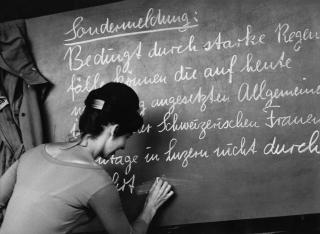 Sondermeldung:
Bedingt durch starke Regen
fälle können die auf heute
angesetzten Allgemeine
der Schweizerischen Frauen
in Luzern nicht durch